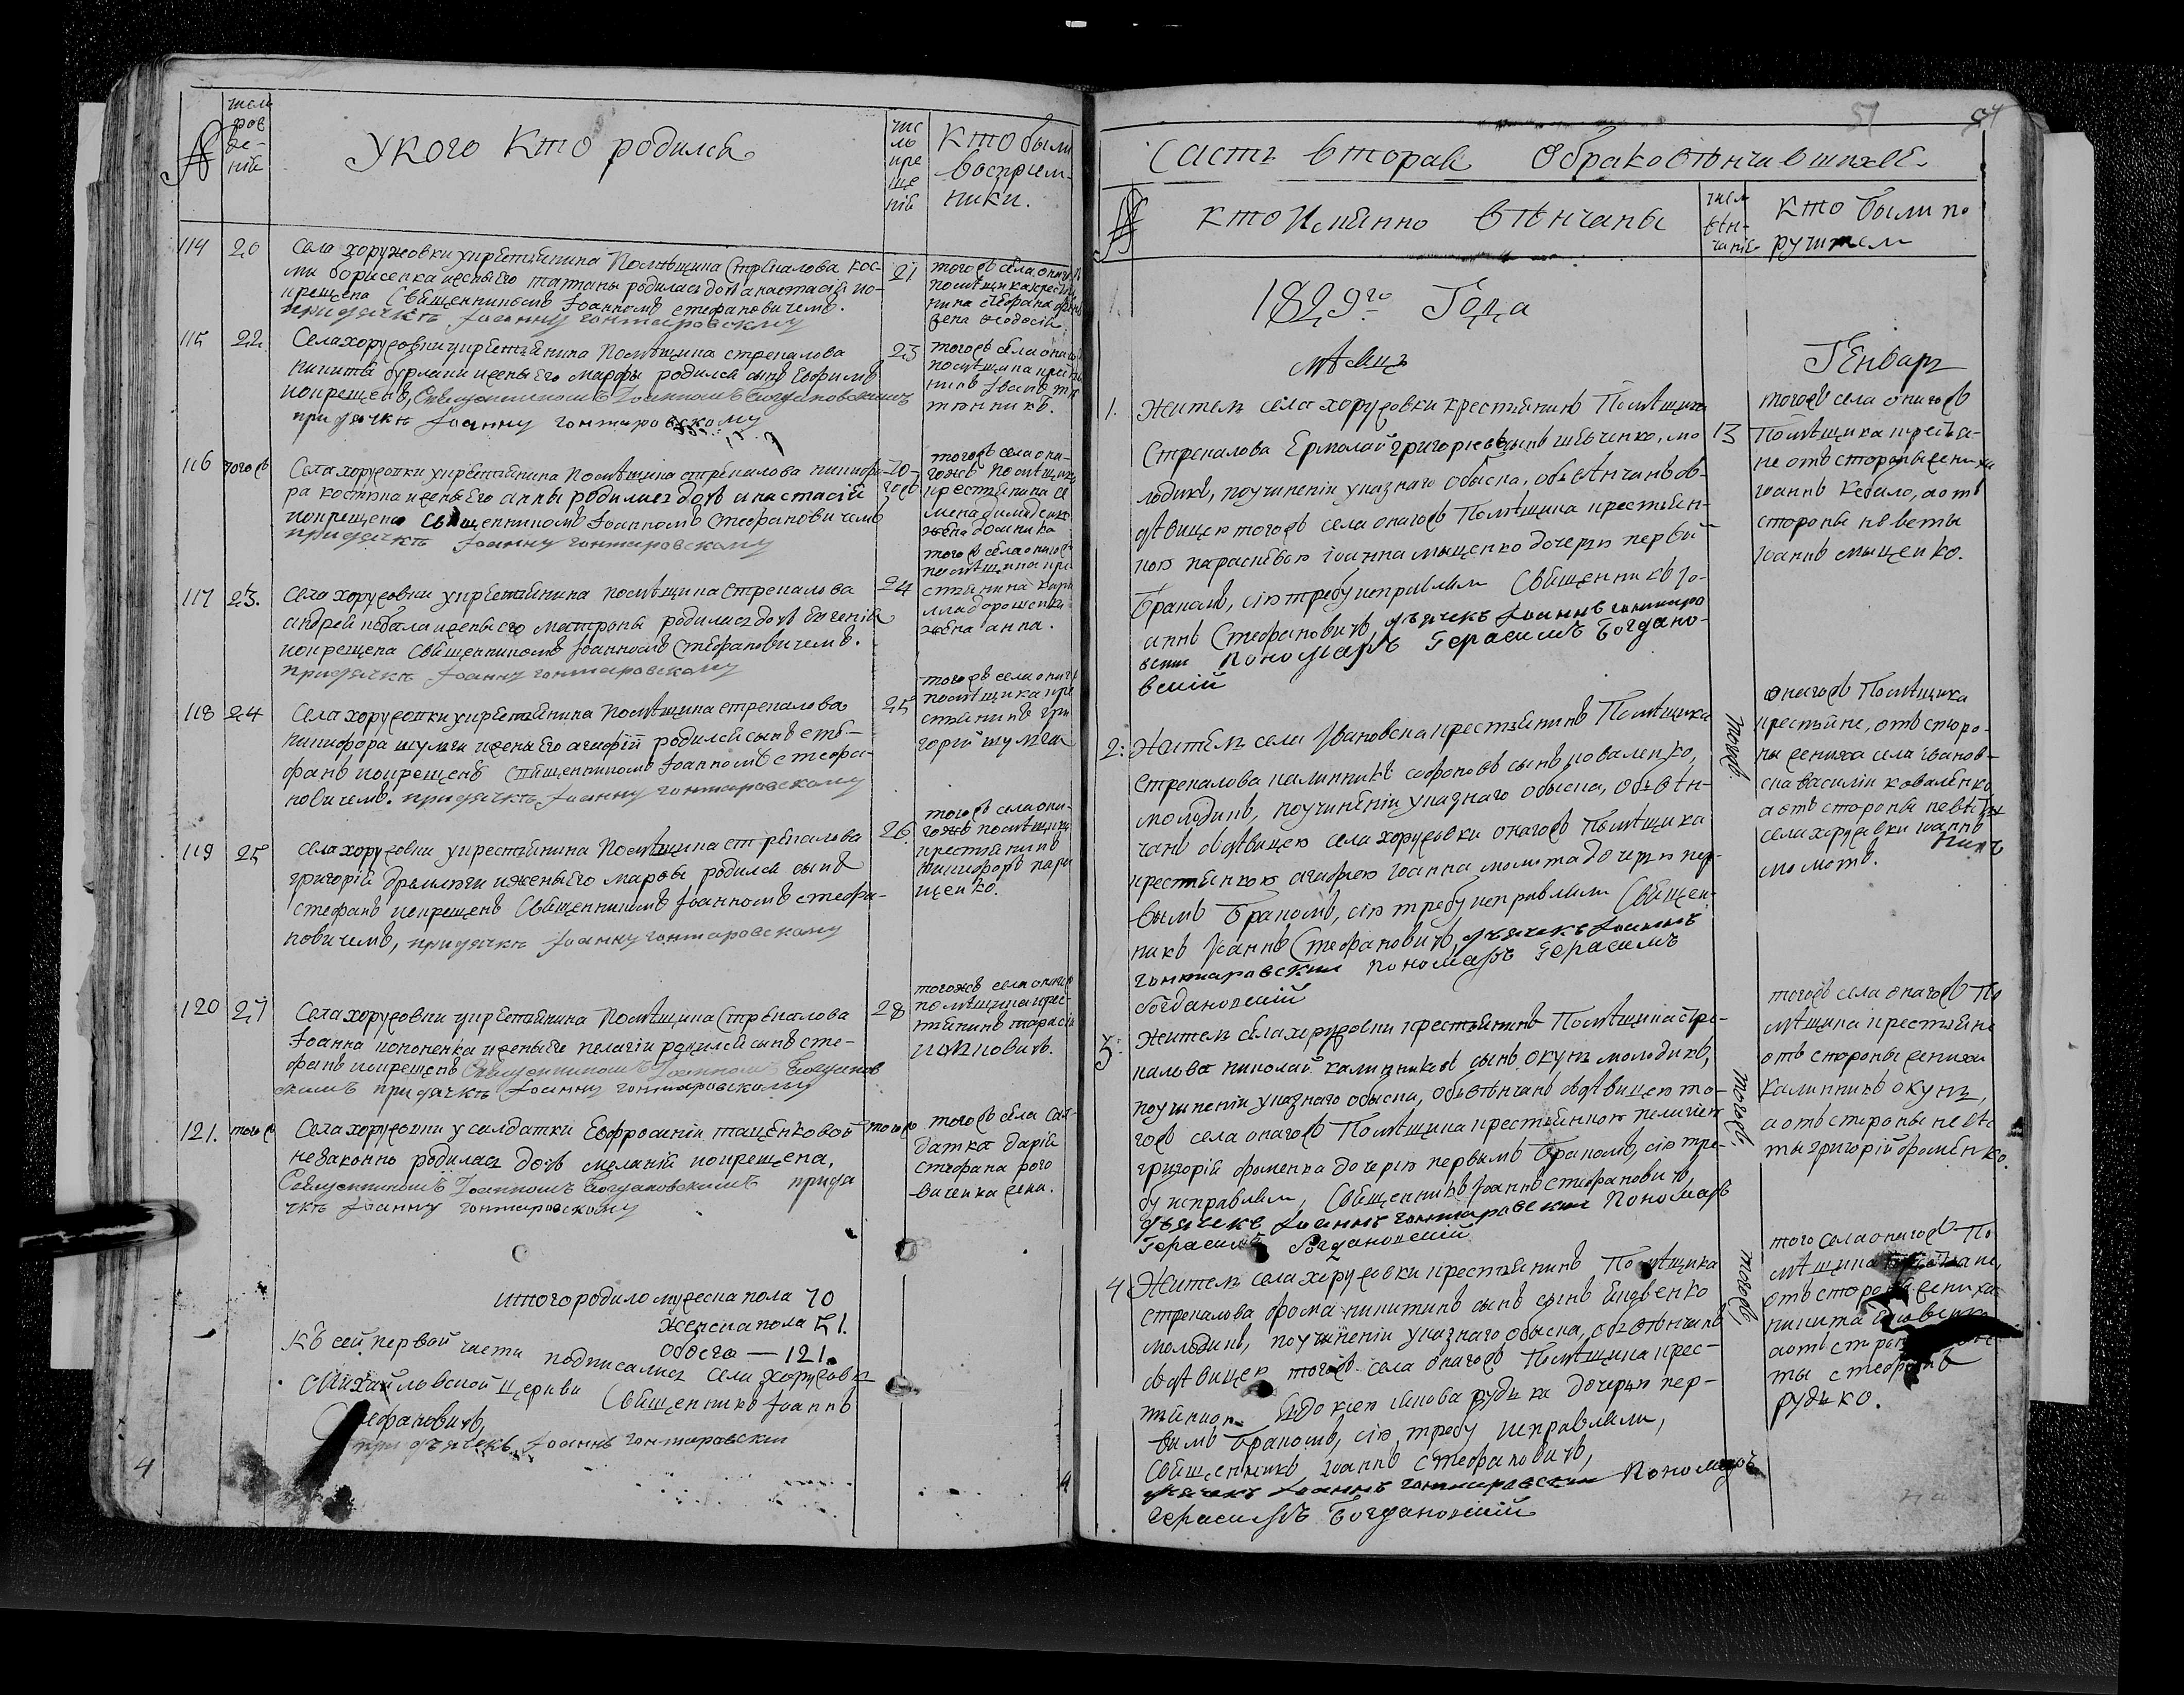 №
числа
рож
де-
нія
У кого кто родился
чис
ло
кре
ще
нія
Кто были
восприем-
ники.
114
20
Села хоружовки у крестьянина Помѣщика Стрекалова Кос-
мы борисенка и жены его татианы родилась дочь анастасія
крещена Священникомъ Іоанномъ Стефановичемъ.
при дячкѣ Іоанну гонтаровскому
21
тогожъ села онаго
помѣщика крестья
нина Стефана
жена Феодосія.
115
22
Села хоружовки у крестьянина Помѣщика стрекалова
никиты бурлаки и жены его марфы родился сынъ Евфимъ
и окрещенъ, Священникомъ Іоанномъ Богдановскимъ
при дячкѣ Іоанну гонтаровскому
23
тогожъ села онаго
помѣщика крестья
нинъ Іванъ
116
тогожъ
Села хоружовки у крестьянина Помѣщика стрекалова никифо-
ра костюка и жены его анны родилась дочь анастасія
и окрещена Священникомъ Іоанномъ Стефановичемъ
при дячкѣ Іоанну гонтаровскому
то-
гожъ
тогожъ села она-
гожъ помѣщика
крестьянина се
мена
жена домникія
117
23.
Села хоружовки у крестьянина помѣщика Стрекалова
андрея кебала и жены его матроны родилась дочь Евгенія
и окрещена Священникомъ Іоанномъ Стефановичемъ.
при дячкѣ Іоанну гонтаровскому
24
тогожъ села онагожъ
помѣщика кре
стьянина кири
лла дорошенка
жена анна.
118
24
Села хоружовки у крестьянина Помѣщика стрекалова
никифора шульги и жены его агафіи родился сынъ сте-
фанъ и окрещенъ Священникомъ Іоанномъ стефа-
новичемъ. при дячкѣ Іоанну гонтаровскому
25
тогожъ села онаго
помѣщика кре
стьянинъ гри
горій шульга
119
25
села хоружовки у крестьянина Помѣщика стрекалова
григорія дрымлюги и жены его марфы родился сынъ
стефанъ и окрещенъ Священникомъ Іоанномъ стефа-
новичемъ, при дячкѣ Іоанну гонтаровскому
26
тогожъ села она-
гожъ помѣщика
крестьянинъ
никифоръ
щенко.
120
27
Села хоружовки у крестьянина Помѣщика Стрекалова
Іоанна кононенка и жены его пелагіи родился сынъ сте-
фанъ и окрещенъ Священникомъ Іоанномъ Богданов
скимъ при дячкѣ Іоанну гонтаровскому
28
тогожъ села онаго
помѣщика крес-
тьянинъ тарасій
121.
тогожъ
Села хоружовки у салдатки Евфросиніи тащенковой
незаконно родилась дочь меланія и окрещена,
Священникомъ Іоанномъ Богдановскимъ при дя
чкѣ Іоанну гонтаровскому
тогожъ
тогожъ села Сал-
датка дарія
стефана рого
виченка жена.
итого родило мужеска пола 70
женска пола 51.
обоего — 121.
Къ сей первой части подписались села хоружовки
Михайловской церкви Священникъ Іоаннъ
Стефановичъ,
дьячекъ Іоаннъ гонтаровскій
4
4
51
Часть вторая О бракосочетавшихся.
№
кто Именно вѣнчаны
числа
вѣн-
чанія
Кто были по
ручители
1829го Года
мѣсяцъ
Генварь
1.
Житель села хоружовки крестьянинъ Помѣщика
Стрекалова Ермолай григорьевъ сынъ шевченко, мо
лодикъ, по учиненіи указнаго обыска, обвѣнчанъ съ д-
ѣвицею тогожъ села онагожъ Помѣщика крестьян-
кою параскевою іоанна мыщенко дочерью первы
бракомъ, сію требу исправляли Священникъ Іо-
аннъ Стефановичъ, дьячекъ Іоаннъ гонтаро
вский Пономарь Герасимъ Богдано-
вскій
13
тогожъ села онагожъ
Помѣщика крестья-
не отъ стороны жениха
іоаннъ Кебало, а отъ
стороны невѣсты
іоаннъ мыщенко.
2.
Житель села Івановска крестьянинъ Помѣщика
Стрекалова калинникъ софоновъ сынъ коваленко,
молодикъ, по учиненіи указнаго обыска, обвѣн-
чанъ съ дѣвицею села хоружовки онагожъ Помѣщика
крестьянкою агафіею іоанна момота дочерью пер-
вымъ бракомъ, сію требу исправляли Священ-
никъ Іоаннъ Стефановичъ, дьячекъ Іоаннъ
гонтаровскій Пономарь Герасимъ
Богдановскій
тогожъ
онагожъ Помѣщика
крестьяне, отъ сторо-
ны жениха села іванов-
ска василій коваленко
а отъ стороны невѣсты
села хоружовки іоаннъ
момотъ.
3.
Житель села хоружовки крестьянинъ Помѣщика Стре-
калова николай калинниковъ сынъ окунь молодикъ,
по учиненіи указнаго обыска, обвѣнчанъ съ дѣвицею то-
гожъ села онагожъ Помѣщика крестьянкою пелагіею
григорія фоменка дочерью первымъ бракомъ, сію тре-
бу исправляли, Священникъ Іоаннъ стефановичъ,
дьячекъ Іоаннъ гонтаровскій Пономарь
Герасимъ Богдановскій
тогожъ
тогожъ села онагожъ По
мѣщика крестьяне
отъ стороны жениха
калинникъ окунь,
а отъ стороны невѣс
ты григорій фоменко.
4
Житель села хоружовки крестьянинъ Помѣщика
стрекалова фома никитинъ сынъ сынъ
молодикъ, по учиненіи указнаго обыска, обвѣнчанъ
съ дѣвицею тогожъ села онагожъ Помѣщика крес-
тьянкою Евдокіею рудька дочерью пер-
вымъ бракомъ, сію требу исправляли,
Священникъ іоаннъ Стефановичъ,
дьячекъ Іоаннъ гонтаровскій Пономарь
Герасимъ Богдановскій
тогожъ
того села онагожъ По
мѣщика
отъ стороны жениха
никита
а отъ стороны
ты стефанъ
рудько.